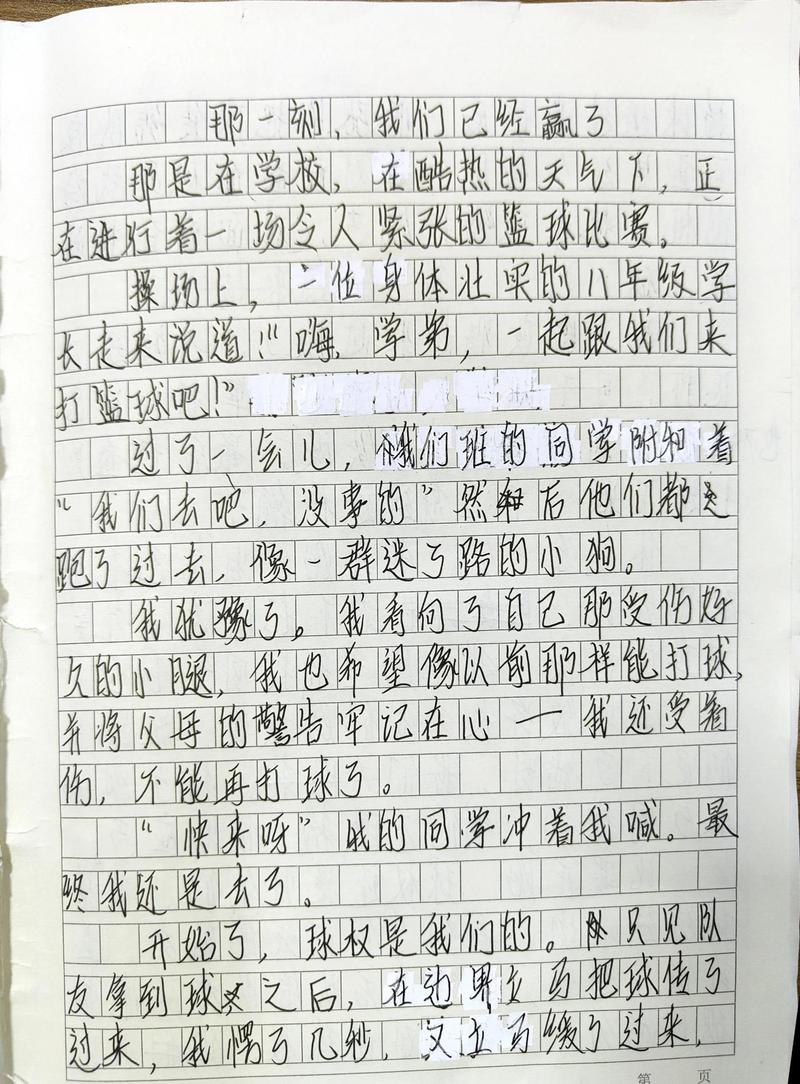 那一刻，我们已经赢了
那是在学校，在酷热的天气下，正
在进行着一场令人紧张的篮球比赛。
操场上，一位身体壮实的八年级学
长走来说道：“嗨，学弟，一起跟我们来
打篮球吧！”
过了一会儿，我们班的同学附和着
“我们去吧，没事的”然后他们都
跑了过去，像一群迷了路的小狗。
我犹豫了。我看向了自己那受伤好
久的小腿，我也希望像以前那样能打球，
并将父母的警告牢记在心——我还受着
伤，不能再打球了。
“快来呀”我的同学冲着我喊。最
终我还是去了。
开始了，球权是我们的。只见队
友拿到球之后，在边界立马把球传了
过来，我愣了几秒，又立马缓了过来，
第 页